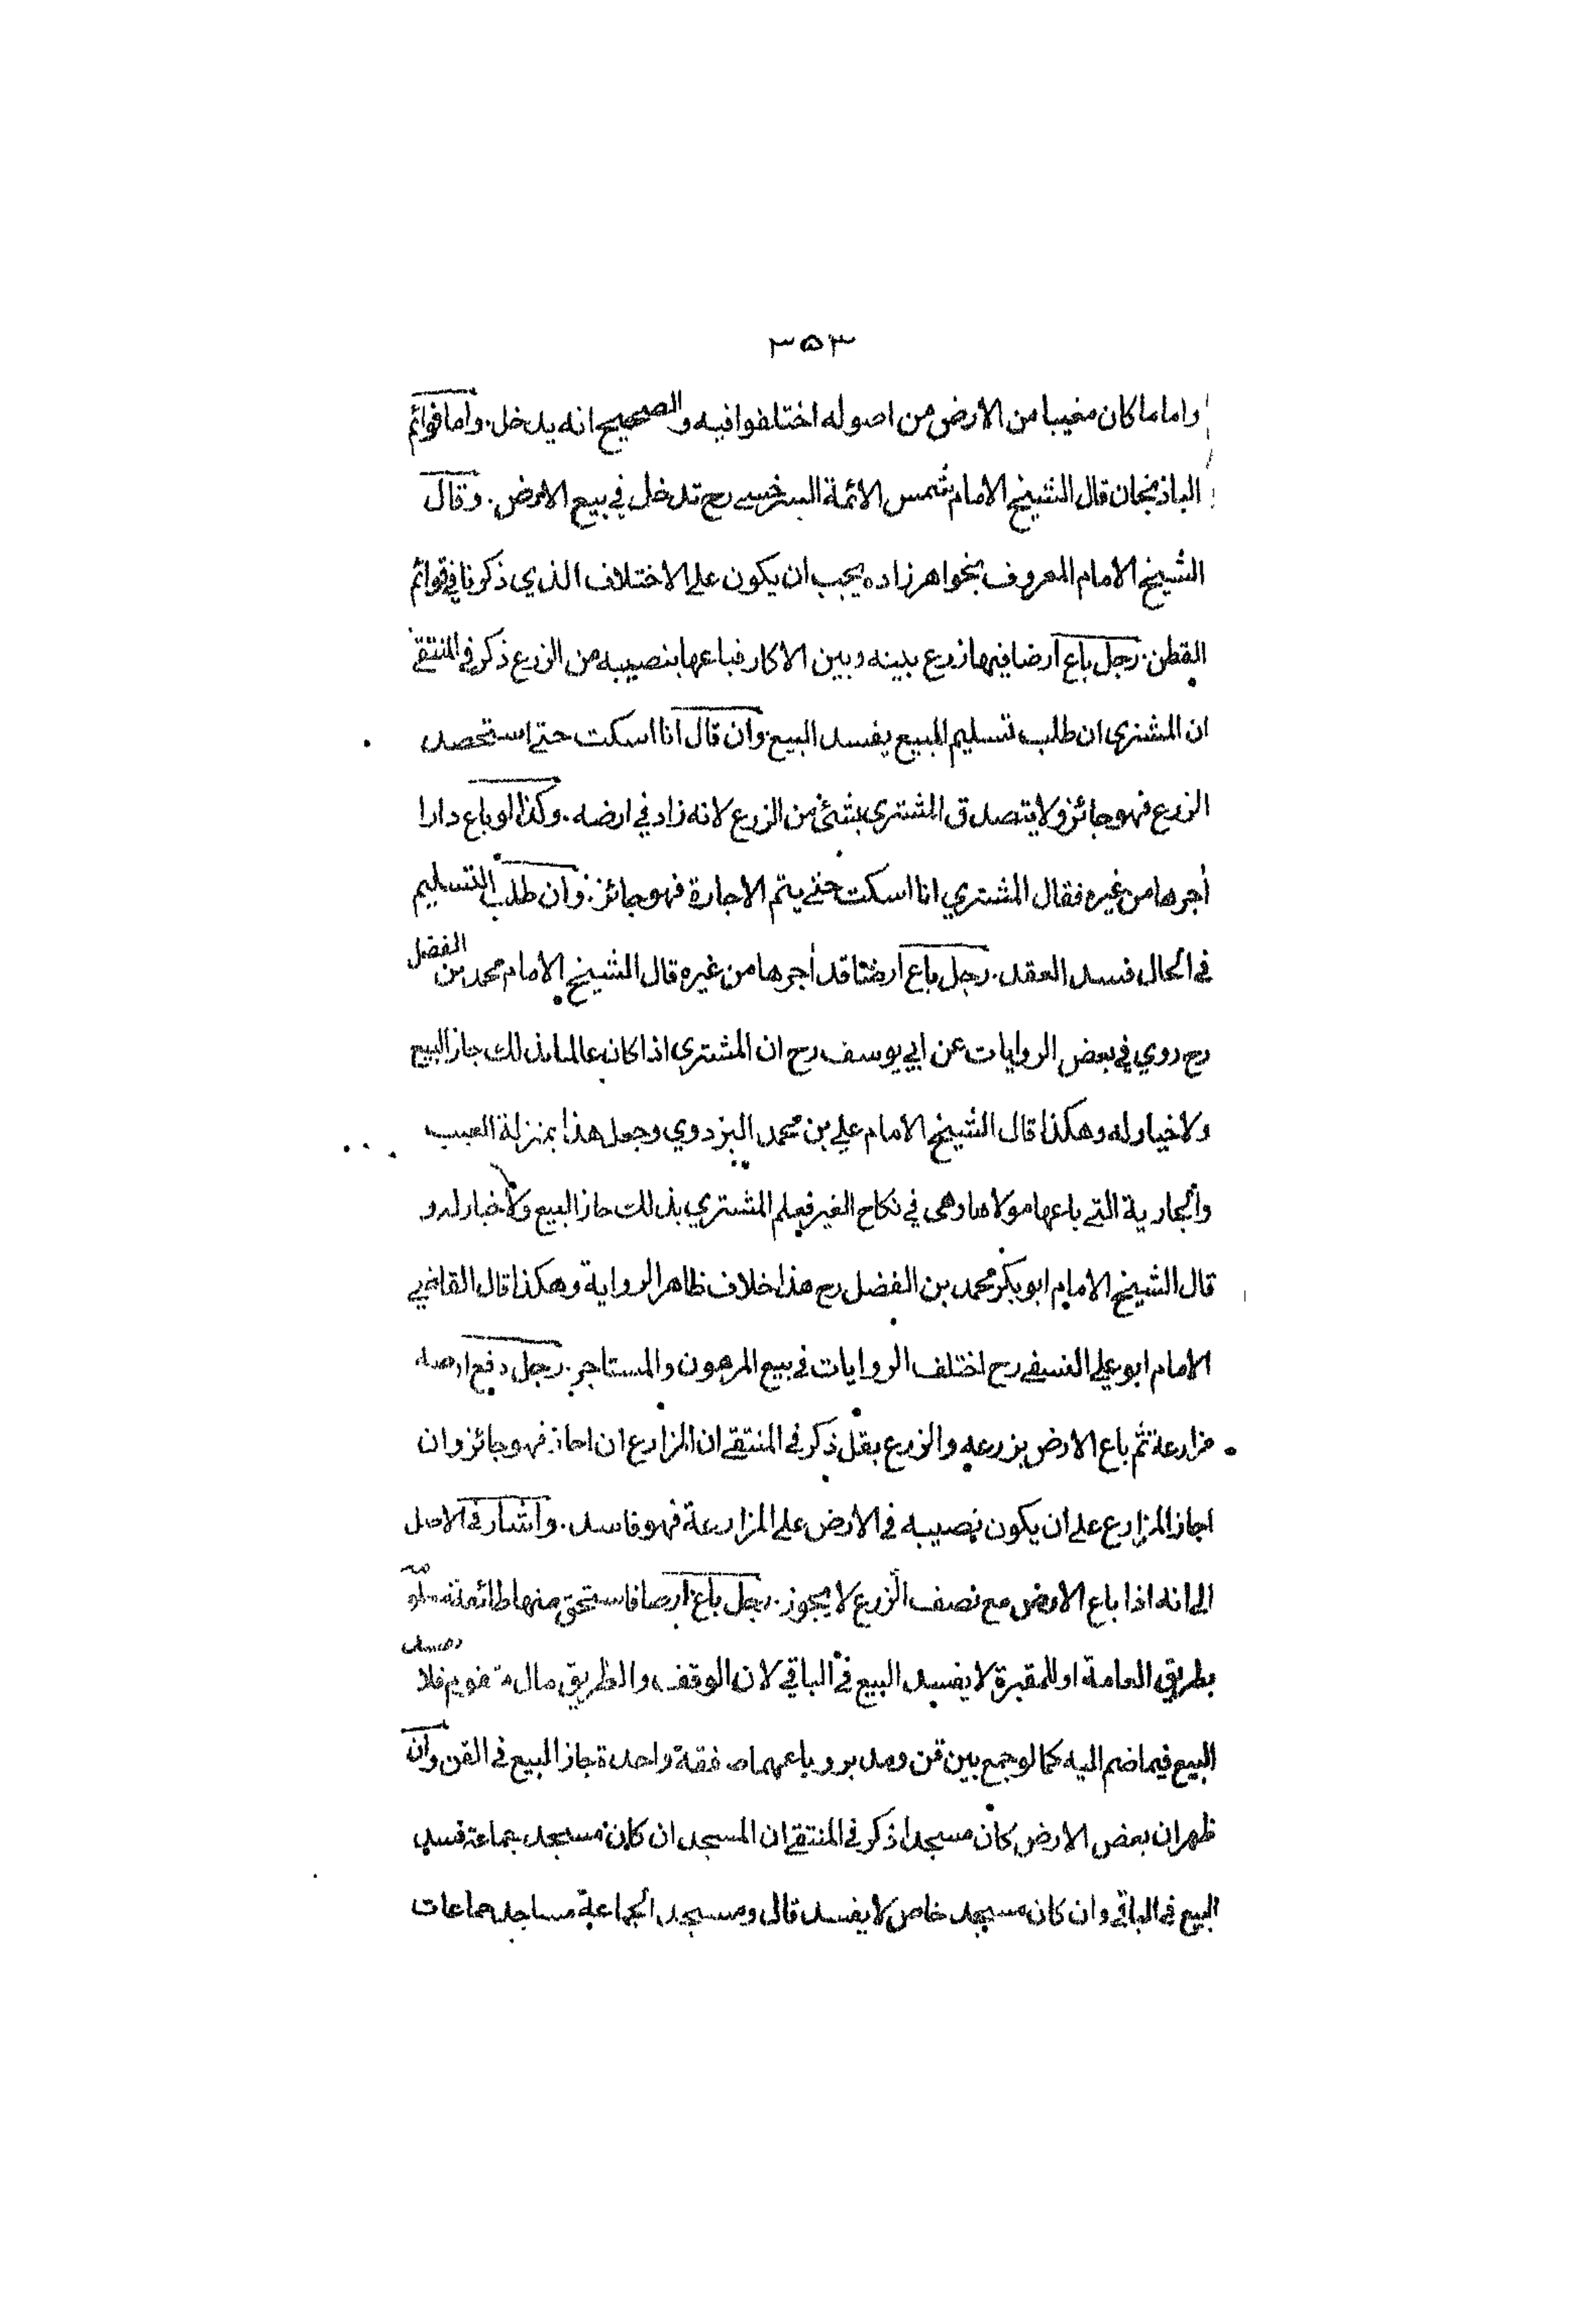 ٣٥٣
واما ما كان مغيبا من الارض من اصوله اختلفوا فيه والصحيح انه يدخل. واما قوائم
الباذنجان قال الشيخ الامام شمس الائمة السرخسي رح تدخل في بيع الارض. وقال
الشيخ الامام المعروف بخواهرزاده يجب ان يكون على الاختلاف الذي ذكرنا في قوائم
القطن. رجل باع ارضا فيها زرع بينه وبين الاكار فباعها بنصيبه من الزرع ذكر في المنتقى
ان المشتري ان طلب تسليم المبيع يفسد البيع وان قال انا اسكت حتى استحصد
الزرع فهو جائز ولا يتصدق المشتري بشئ من الزرع لانه زاد في ارضه. وكذا لو باع دارا
أجرها من غيره فقال المشتري انا اسكت حتى يتم الاجارة فهو جائز. وان طلب التسليم
في الحال فسد العقد. رجل باع ارضا قد أجرها من غيره قال الشيخ الامام محمد بن الفضل
رح روي في بعض الروايات عن ابي يوسف رح ان المشتري اذا كان عالما بذلك جاز البيع
ولا خيار له وهكذا قال الشيخ الامام علي بن محمد البزدوي وجعل هذا بمنزلة العيب
والجارية التي باعها مولاها وهي في نكاح الغير فعلم المشتري بذلك جاز البيع ولا خيار له و
قال الشيخ الامام ابو بكر محمد بن الفضل رح هذا خلاف ظاهر الرواية وهكذا قال القاضي
الامام ابو علي النسفي رح اختلف الروايات في بيع المرهون والمستاجر. رجل دفع ارضه
مزارعة ثم باع الارض بزرعه والزرع بقل ذكر في المنتقى ان المزارع ان اجاز فهو جائز وان
اجاز المزارع على ان يكون نصيبه في الارض على المزارعة فهو فاسد. واشار في الاصل
الى انه اذا باع الارض مع نصف الزرع لا يجوز. رجل باع ارضا فاستحق منها طائفة
بطريق العامة او للمقبرة لا يفسد البيع في الباقي لان الوقف والطريق مال متقوم فلا يفسد
البيع فيما ضم اليه كما لو جمع بين قن ومدبر وباعهما صفقة واحدة جاز البيع في القن وان
ظهر ان بعض الارض كان مسجدا ذكر في المنتقى ان المسجد ان كان مسجد جماعة فسد
البيع في الباقي وان كان مسجد خاص لا يفسد قال ومسجد الجماعة مساجد جماعات